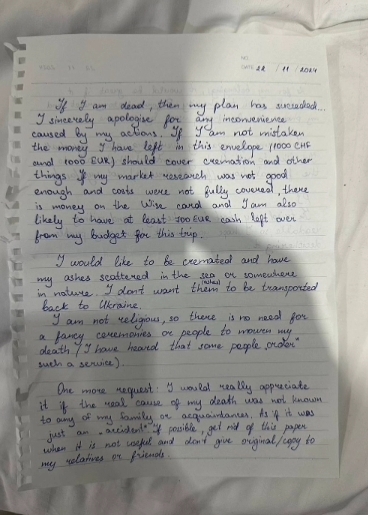 DATE 22 / 11 / 2024
If I am dead, then my plan has succeeded...
I sincerely apologise for any inconvenience
caused by my actions. If I am not mistaken
the money I have left in this envelope (1000 CHF
and 1000 EUR) should cover cremation and other
things. If my market research was not good
enough and costs were not fully covered, there
is money on the Wise card and I am also
likely to have at least 500 EUR cash left over
from my budget for this trip.
I would like to be cremated and have
my ashes scattered in the sea or somewhere
in nature. I don't want them (ashes) to be transported
back to Ukraine.
I am not religious, so there is no need for
a fancy ceremonies or people to mourn my
death. (I have heard that some people „order"
such a service).
One more request: I would really appreciate
it if the real cause of my death was not known
to any of my family or acquaintances. As if it was
just an „accident". If possible, get rid of this paper
when it is not useful and don't give original/copy to
my relatives or friends.